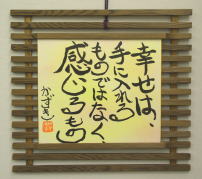 幸せは、
手に入れる
ものではなく、
感じるもの
かずき